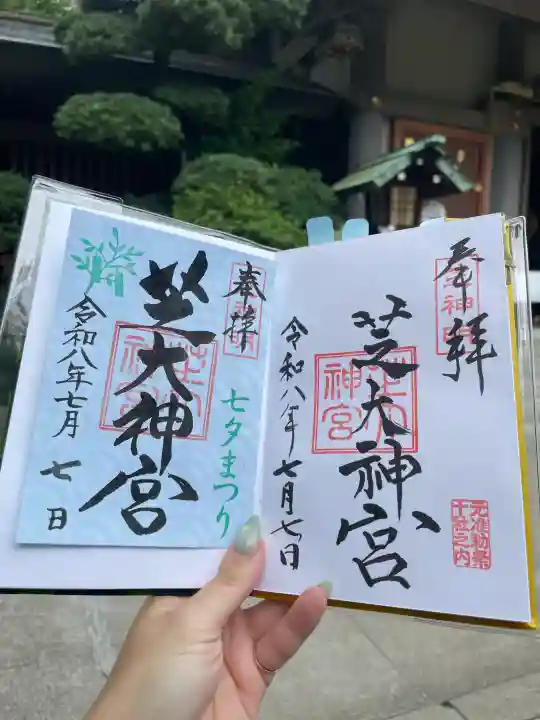 奉拝
芝大神宮
七夕まつり
令和八年七月
七日
奉拝
芝大神宮
令和八年七月七日
元准勅祭
十社之内
芝大
神宮